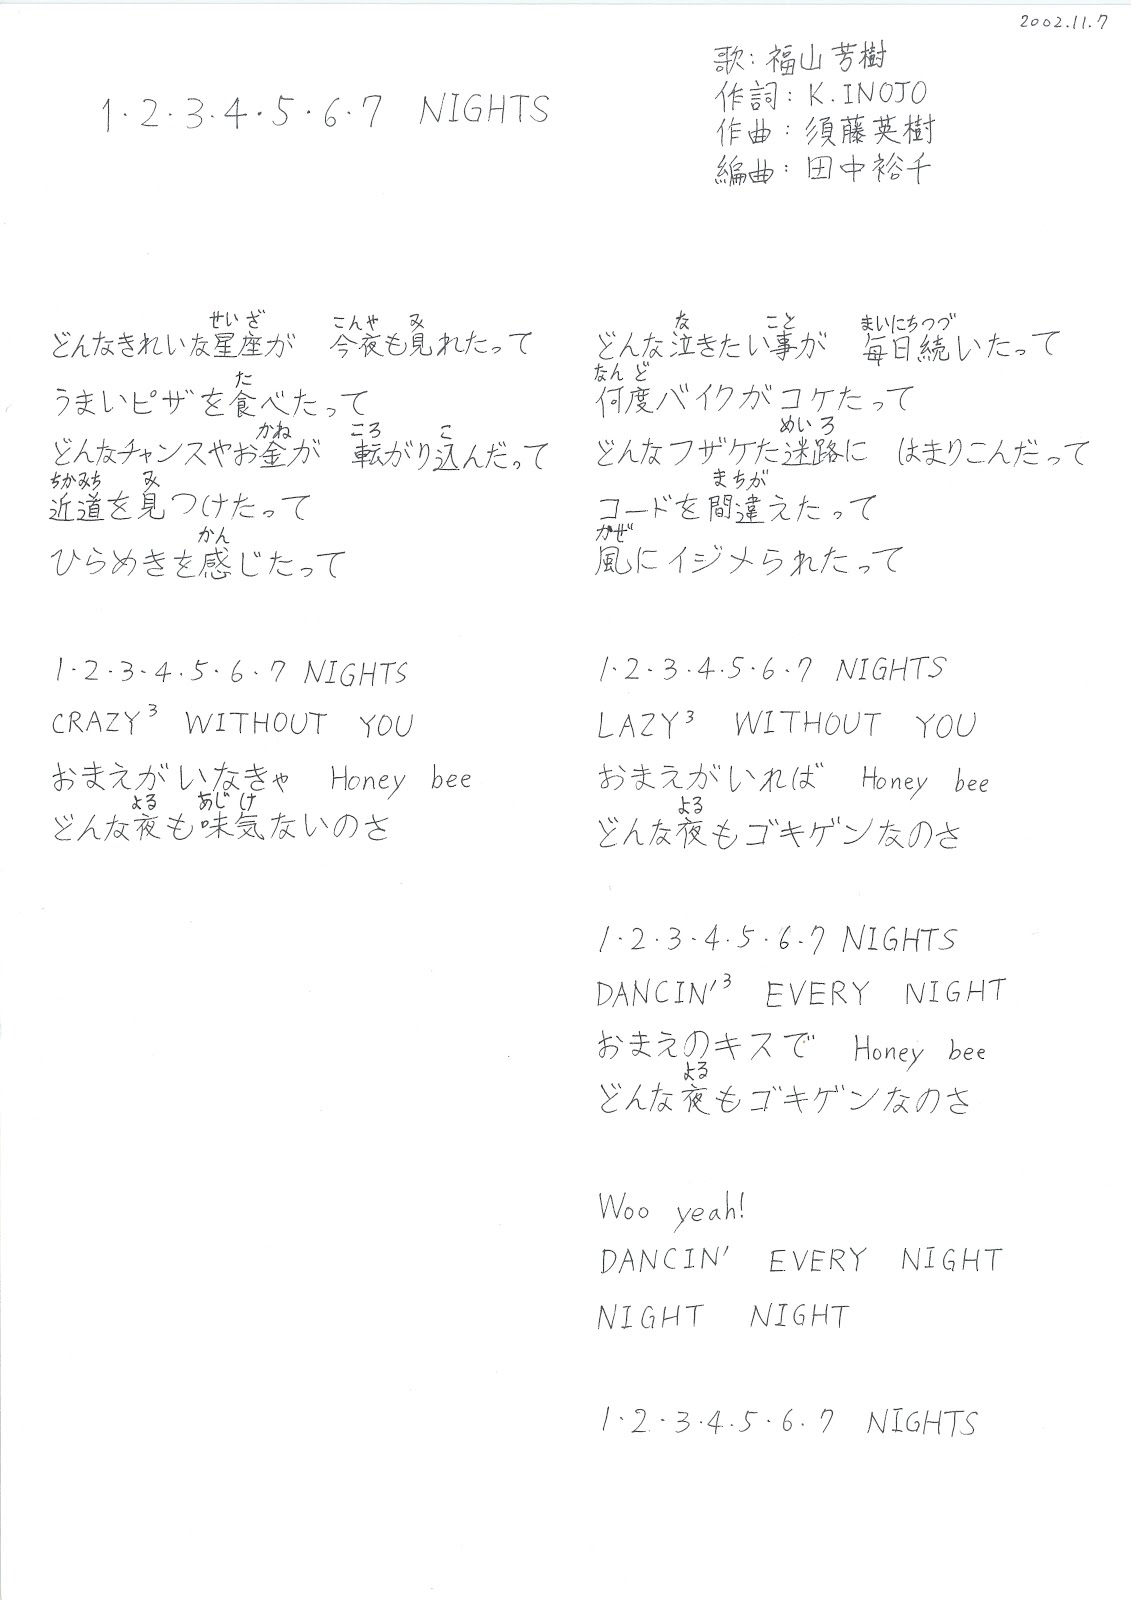 2002.11.7
1・2・3・4・5・6・7 NIGHTS
歌：福山芳樹
作詞：K.INOJO
作曲：須藤英樹
編曲：田中裕千
せいざ こんや み
どんなきれいな星座が 今夜も見れたって
た
うまいピザを食べたって
かね ころ こ
どんなチャンスやお金が 転がり込んだって
ちかみち み
近道を見つけたって
かん
ひらめきを感じたって
1・2・3・4・5・6・7 NIGHTS
CRAZY³ WITHOUT YOU
おまえがいなきゃ Honey bee
よる あじけ
どんな夜も味気ないのさ
な こと まいにちつづ
どんな泣きたい事が 毎日続いたって
なんど
何度バイクがコケたって
めいろ
どんなフザケた迷路に はまりこんだって
まちが
コードを間違えたって
かぜ
風にイジメられたって
1・2・3・4・5・6・7 NIGHTS
LAZY³ WITHOUT YOU
おまえがいれば Honey bee
よる
どんな夜もゴキゲンなのさ
1・2・3・4・5・6・7 NIGHTS
DANCIN'³ EVERY NIGHT
おまえのキスで Honey bee
よる
どんな夜もゴキゲンなのさ
Woo yeah!
DANCIN' EVERY NIGHT
NIGHT NIGHT
1・2・3・4・5・6・7 NIGHTS